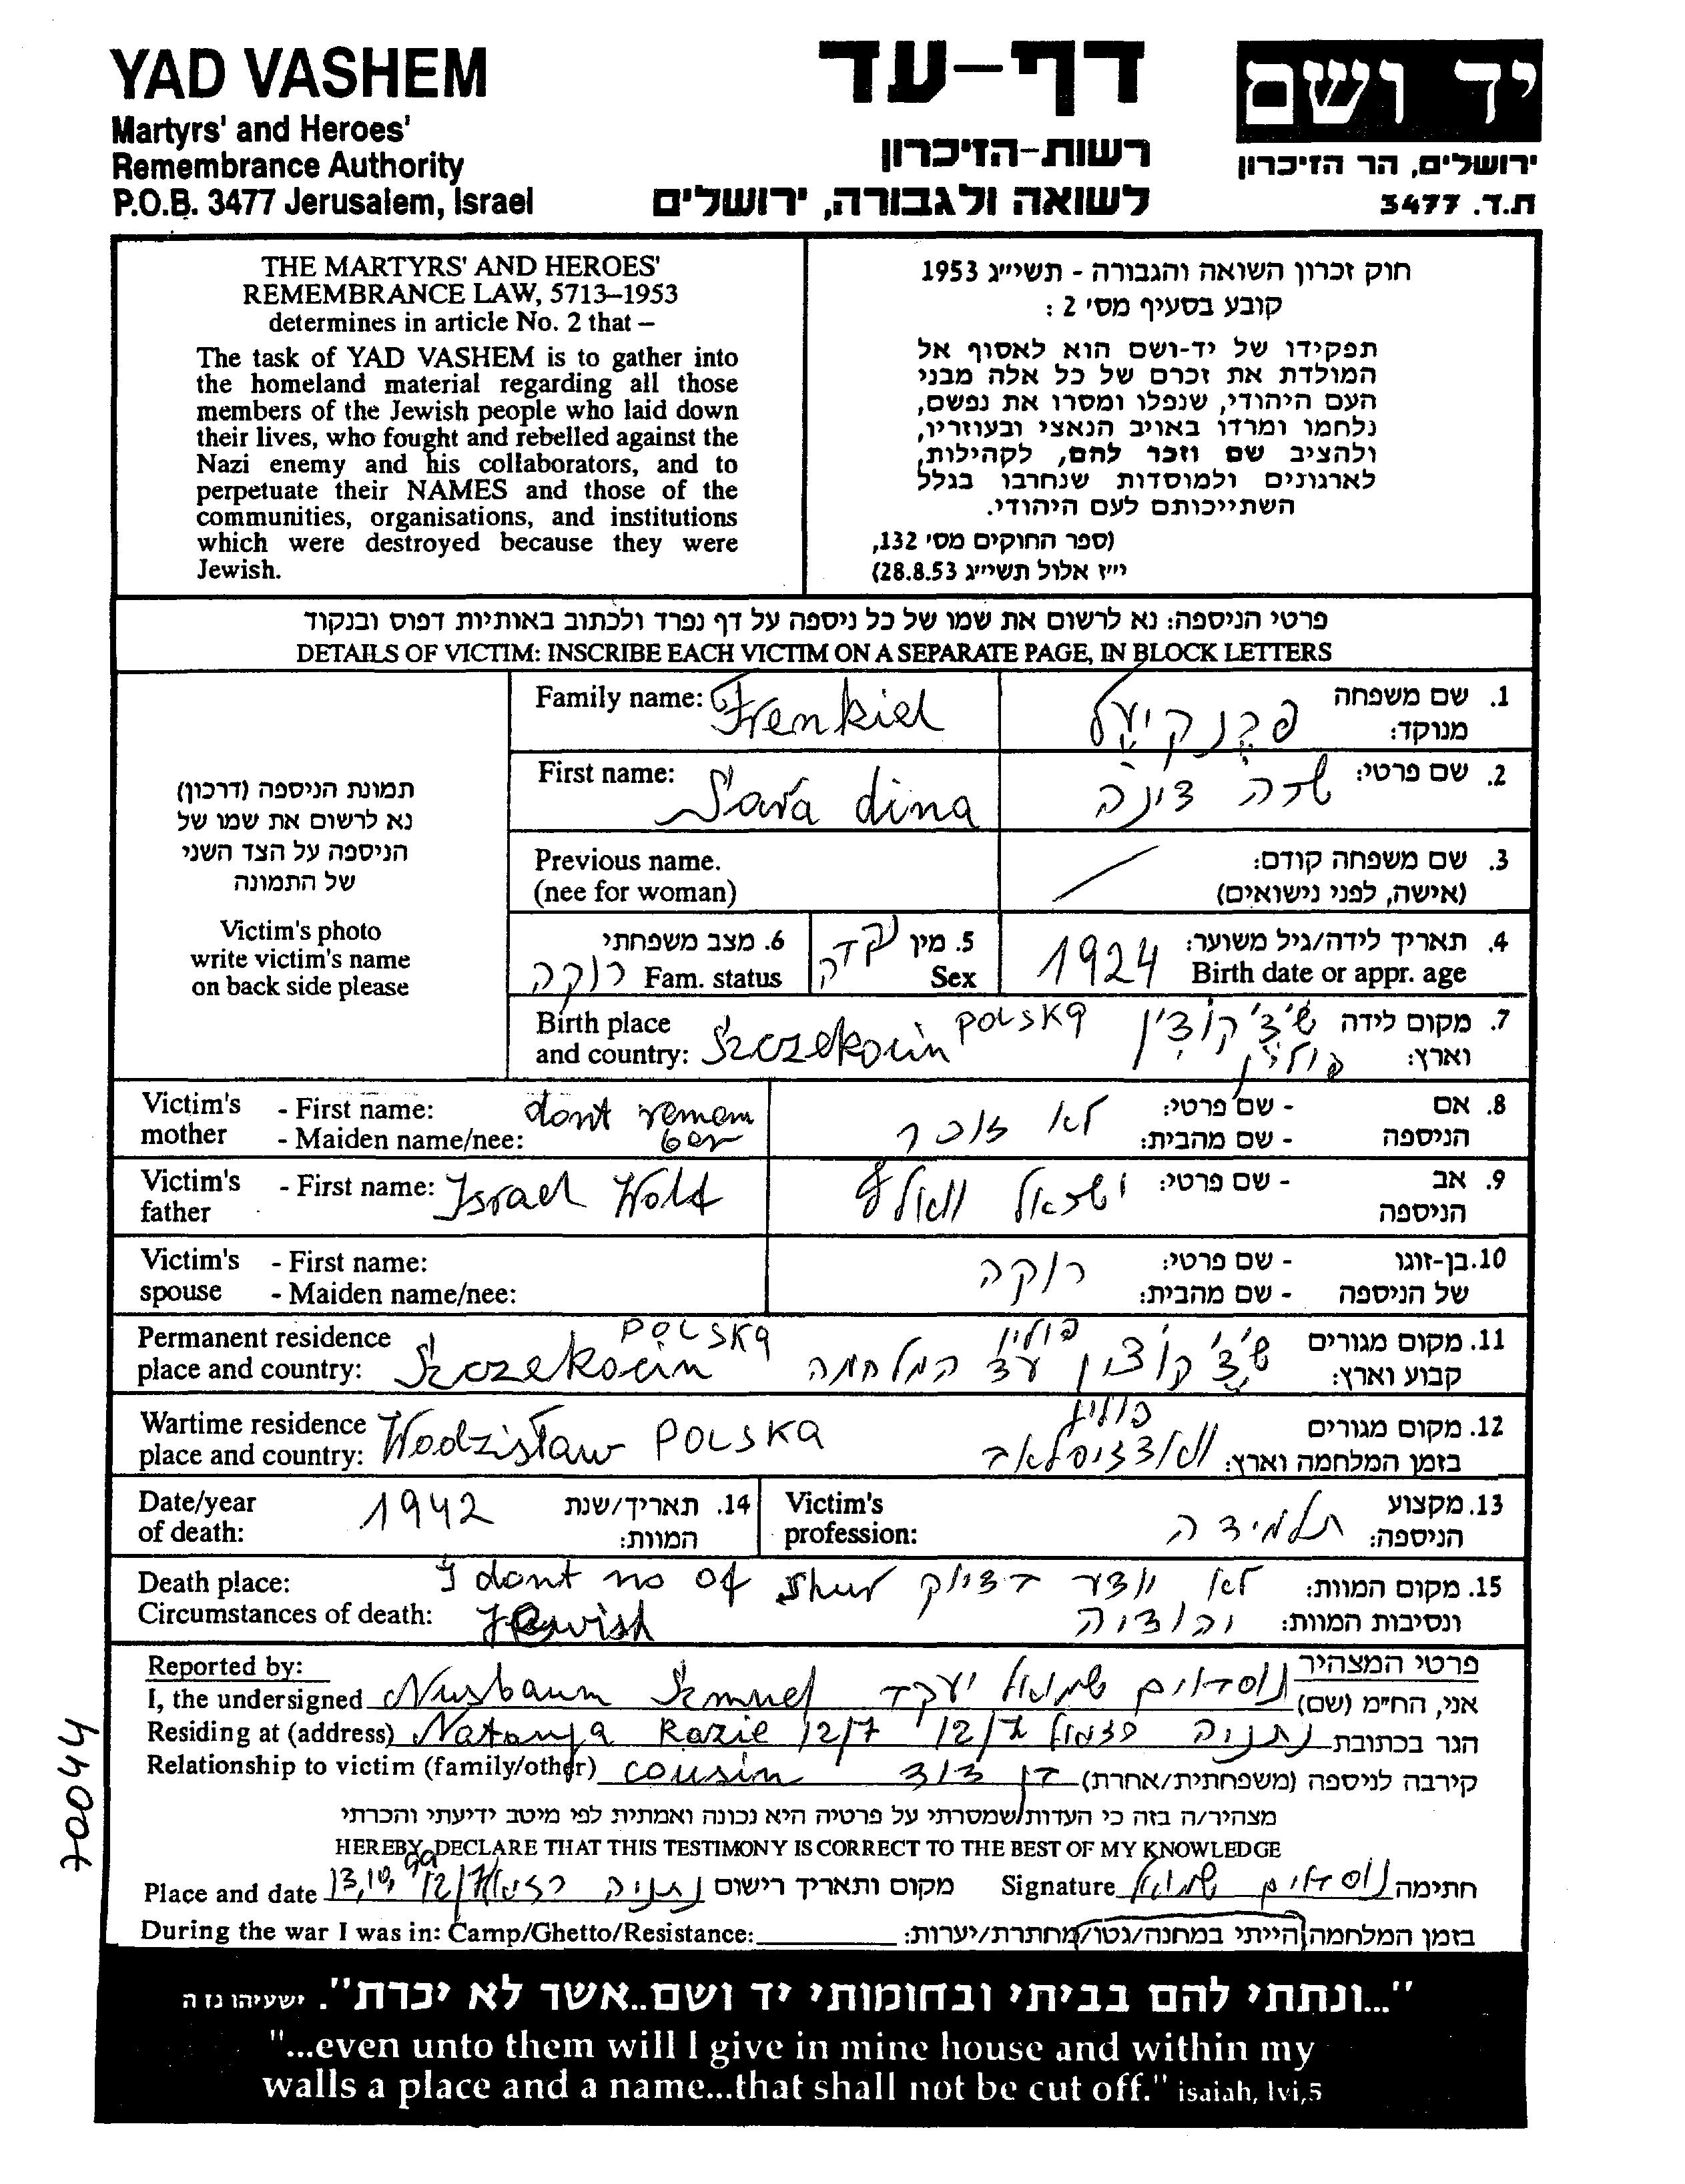 YAD VASHEM
Martyrs' and Heroes'
Remembrance Authority
P.O.B. 3477 Jerusalem, Israel
דף-עד
רשות-הזיכרון
לשואה ולגבורה, ירושלים
יד ושם
ירושלים, הר הזיכרון
ת.ד. 3477
THE MARTYRS' AND HEROES'
REMEMBRANCE LAW, 5713–1953
determines in article No. 2 that –
The task of YAD VASHEM is to gather into
the homeland material regarding all those
members of the Jewish people who laid down
their lives, who fought and rebelled against the
Nazi enemy and his collaborators, and to
perpetuate their NAMES and those of the
communities, organisations, and institutions
which were destroyed because they were
Jewish.
חוק זכרון השואה והגבורה - תשי״ג 1953
קובע בסעיף מס׳ 2 :
תפקידו של יד-ושם הוא לאסוף אל
המולדת את זכרם של כל אלה מבני
העם היהודי, שנפלו ומסרו את נפשם,
נלחמו ומרדו באויב הנאצי ובעוזריו,
ולהציב שם וזכר להם, לקהילות,
לארגונים ולמוסדות שנחרבו בגלל
השתייכותם לעם היהודי.
(ספר החוקים מס׳ 132,
י״ז אלול תשי״ג 28.8.53)
פרטי הניספה: נא לרשום את שמו של כל ניספה על דף נפרד ולכתוב באותיות דפוס ובנקוד
DETAILS OF VICTIM: INSCRIBE EACH VICTIM ON A SEPARATE PAGE, IN BLOCK LETTERS
תמונת הניספה (דרכון)
נא לרשום את שמו של
הניספה על הצד השני
של התמונה
Victim's photo
write victim's name
on back side please
Family name: Frenkiel
1. שם משפחה מנוקד: פרנקיעל
First name: Sara dina
2. שם פרטי: שרה דינה
Previous name.
(nee for woman)
3. שם משפחה קודם:
(אישה, לפני נישואים)
4. תאריך לידה/גיל משוער: 1924
Birth date or appr. age
5. מין נקבה
Sex
6. מצב משפחתי
רוקה Fam. status
Birth place
and country: Szczekocin POLSKA
7. מקום לידה
וארץ: שצ'קוצין פולין
Victim's mother - First name: dont remem
- Maiden name/nee: ber
8. אם הניספה - שם פרטי: לא זוכר
- שם מהבית:
Victim's father - First name: Israel Wolf
9. אב הניספה - שם פרטי: ישראל וואלף
Victim's spouse - First name:
- Maiden name/nee:
10. בן-זוגו של הניספה - שם פרטי: רוקה
- שם מהבית:
Permanent residence
place and country: Szczekocin POLSKA
11. מקום מגורים
קבוע וארץ: שצ'קוצין פולין עד המלחמה
Wartime residence
place and country: Wodzisław POLSKA
12. מקום מגורים
בזמן המלחמה וארץ: וואדזיסלאב פולין
Date/year
of death: 1942
14. תאריך/שנת
המוות:
Victim's
profession:
13. מקצוע
הניספה: תלמידה
Death place: I dont no of shur
Circumstances of death: Jewish
15. מקום המוות: לא יודע בדיוק
ונסיבות המוות: יהודיה
Reported by:
I, the undersigned Nusbaum Szmuel
פרטי המצהיר
אני, הח״מ (שם) נוסבוים שמואל יעקב
Residing at (address) Natanya Razie 12/7
הגר בכתובת נתניה רזיאל 12/7
Relationship to victim (family/other) cousin
קירבה לניספה (משפחתית/אחרת) בן דוד
מצהיר/ה בזה כי העדות שמסרתי על פרטיה היא נכונה ואמתית לפי מיטב ידיעתי והכרתי
HEREBY DECLARE THAT THIS TESTIMONY IS CORRECT TO THE BEST OF MY KNOWLEDGE
Place and date 13,10,99 מקום ותאריך רישום נתניה רזיאל 12/7
Signature נוסבוים שמואל חתימה
During the war I was in: Camp/Ghetto/Resistance:
בזמן המלחמה הייתי במחנה/גטו/מחתרת/יערות:
"...ונתתי להם בביתי ובחומותי יד ושם..אשר לא יכרת". ישעיהו נז ה
"...even unto them will I give in mine house and within my
walls a place and a name...that shall not be cut off." isaiah, lvi,5
70044